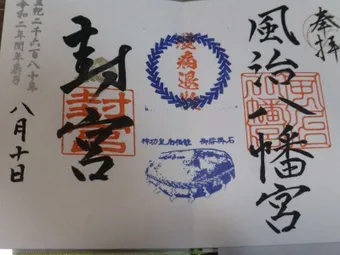 奉拝
風治八幡宮
疫病退散
神功皇后
御腰掛石
封宮
皇紀二千六百八十年
令和二年閏年庚子
八月十日